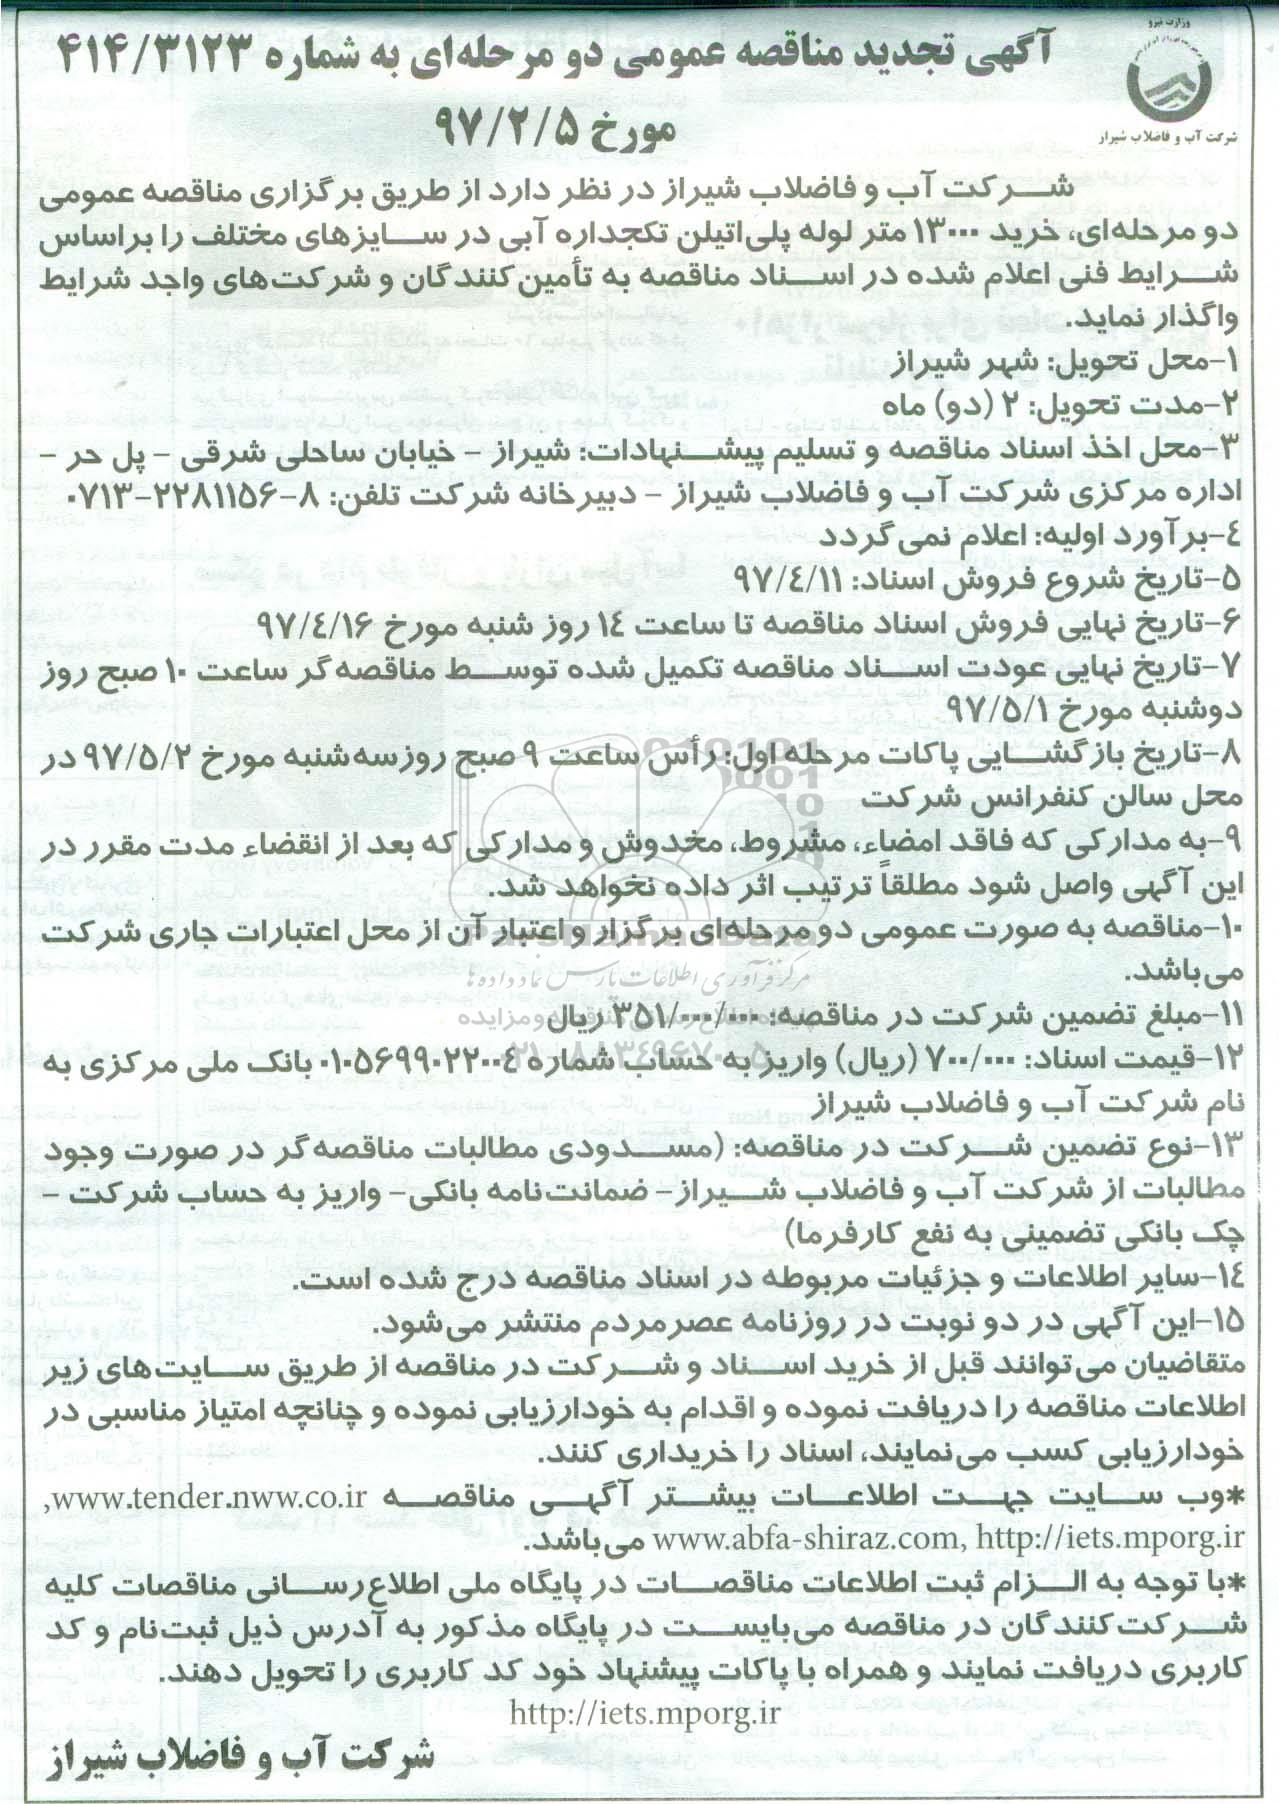 وزارت نیرو
شرکت آب و فاضلاب شیراز
آگهی تجدید مناقصه عمومی دو مرحله‌ای به شماره ۴۱۴/۳۱۲۳
مورخ ۹۷/۲/۵
شرکت آب و فاضلاب شیراز در نظر دارد از طریق برگزاری مناقصه عمومی
دو مرحله‌ای، خرید ۱۳۰۰۰ متر لوله پلی‌اتیلن تکجداره آبی در سایزهای مختلف را براساس
شرایط فنی اعلام شده در اسناد مناقصه به تأمین‌کنندگان و شرکت‌های واجد شرایط
واگذار نماید.
۱-محل تحویل: شهر شیراز
۲-مدت تحویل: ۲ (دو) ماه
۳-محل اخذ اسناد مناقصه و تسلیم پیشنهادات: شیراز - خیابان ساحلی شرقی - پل حر -
اداره مرکزی شرکت آب و فاضلاب شیراز - دبیرخانه شرکت تلفن: ۸-۲۲۸۱۱۵۶-۰۷۱۳
۴-برآورد اولیه: اعلام نمی‌گردد
۵-تاریخ شروع فروش اسناد: ۹۷/۴/۱۱
۶-تاریخ نهایی فروش اسناد مناقصه تا ساعت ۱۴ روز شنبه مورخ ۹۷/۴/۱۶
۷-تاریخ نهایی عودت اسناد مناقصه تکمیل شده توسط مناقصه‌گر ساعت ۱۰ صبح روز
دوشنبه مورخ ۹۷/۵/۱
۸-تاریخ بازگشایی پاکات مرحله اول: رأس ساعت ۹ صبح روزسه‌شنبه مورخ ۹۷/۵/۲ در
محل سالن کنفرانس شرکت
۹-به مدارکی که فاقد امضاء، مشروط، مخدوش و مدارکی که بعد از انقضاء مدت مقرر در
این آگهی واصل شود مطلقاً ترتیب اثر داده نخواهد شد.
۱۰-مناقصه به صورت عمومی دو مرحله‌ای برگزار و اعتبار آن از محل اعتبارات جاری شرکت
می‌باشد.
ParsNamadData
مرکز فرآوری اطلاعات پارس نماد داده‌ها
۱۱-مبلغ تضمین شرکت در مناقصه: ۳۵۱/۰۰۰/۰۰۰ ریال
۱۲-قیمت اسناد: ۷۰۰/۰۰۰ (ریال) واریز به حساب شماره ۰۱۰۵۶۹۹۰۲۲۰۰۴ بانک ملی مرکزی به
نام شرکت آب و فاضلاب شیراز
۱۳-نوع تضمین شرکت در مناقصه: (مسدودی مطالبات مناقصه‌گر در صورت وجود
مطالبات از شرکت آب و فاضلاب شیراز- ضمانت‌نامه بانکی- واریز به حساب شرکت -
چک بانکی تضمینی به نفع کارفرما)
۱۴-سایر اطلاعات و جزئیات مربوطه در اسناد مناقصه درج شده است.
۱۵-این آگهی در دو نوبت در روزنامه عصرمردم منتشر می‌شود.
متقاضیان می‌توانند قبل از خرید اسناد و شرکت در مناقصه از طریق سایت‌های زیر
اطلاعات مناقصه را دریافت نموده و اقدام به خودارزیابی نموده و چنانچه امتیاز مناسبی در
خودارزیابی کسب می‌نمایند، اسناد را خریداری کنند.
*وب سایت جهت اطلاعات بیشتر آگهی مناقصه www.tender.nww.co.ir,
www.abfa-shiraz.com, http://iets.mporg.ir می‌باشد.
*با توجه به الزام ثبت اطلاعات مناقصات در پایگاه ملی اطلاع‌رسانی مناقصات کلیه
شرکت‌کنندگان در مناقصه می‌بایست در پایگاه مذکور به آدرس ذیل ثبت‌نام و کد
کاربری دریافت نمایند و همراه با پاکات پیشنهاد خود کد کاربری را تحویل دهند.
http://iets.mporg.ir
شرکت آب و فاضلاب شیراز